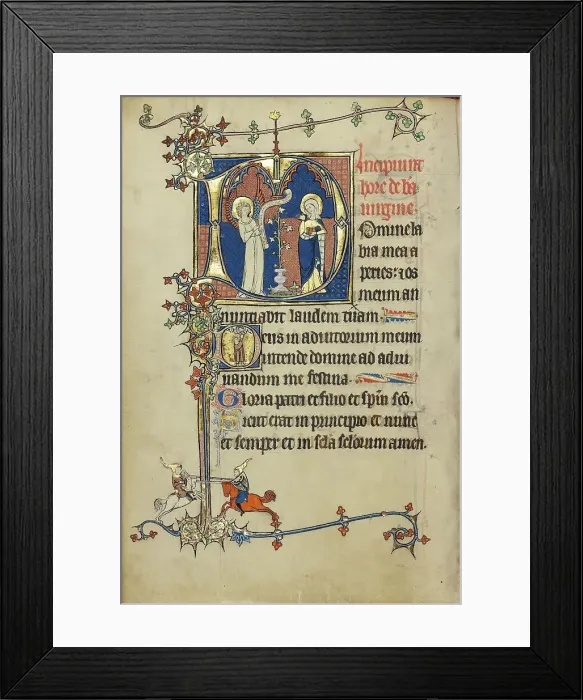 Incipiunt
hore de bā
uirgine.
Domine la
bia mea a
peries: ⁊ os
meum an
nunciabit laudem tuam.
Deus in adiutorium meum
intende domine ad adiu
uandum me festina.
Gloria patri et filio et spūi scō.
Sicut erat in principio et nunc
et semper et in scła scłorum amen.